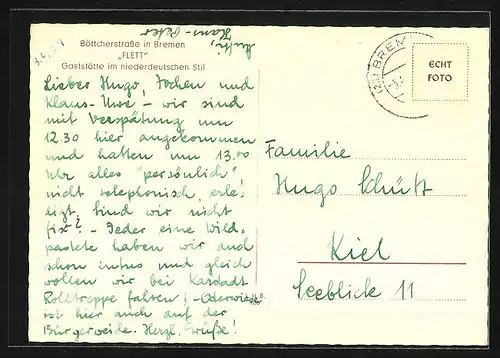 3.6.59
Böttcherstraße in Bremen
„FLETT"
Gaststätte im niederdeutschen Stil
Lieber Hugo, Jochen und
Klaus-Uwe – wir sind
mit Verspätung um
12.30 hier angekommen
und hatten um 13.00
Uhr alles "persönlich",
nicht telephonisch, erle-
digt. Sind wir nicht
fix? – Jeder eine Wild-
pastete haben wir auch
schon intus und gleich
wollen wir bei Karstadt
Rolltreppe fahren! –
ist hier auch auf der
Bürgerweide. Herzl. Grüße!
Hans-Peter
BREM
ECHT
FOTO
Familie
Hugo Schütt
Kiel
Seeblick 11